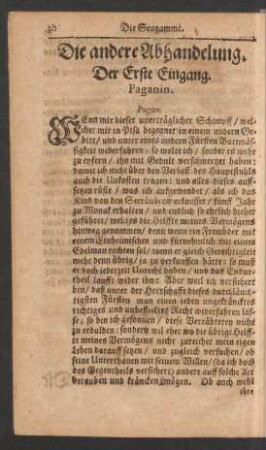 30 Die Seugamme.
Die andere Abhandelung.
Der Erste Eingang.
Paganin.
Pagan.
WEnn mir dieser unerträglicher Schimpff / wel-
cher mir in Pisa begegnet in einem andern Ge-
biete / und unter eines andern Fürsten Botmäs-
sigkeit widerfahren / so wolte ich / sonder es mehr
zu eyfern / ihn mit Gedult verschmertzet haben:
damit ich nicht über den Verlust des Hauptstuhls
auch die Unkosten tragen: und alles dieses auff-
setzen müste / was ich auffgewendet / als ich das
Kind von den Seeräubern erkauffet / fünff Jahr
zu Monat erhalten / und endlich so ehrlich hieher
geführet / welches die Helffte meines Vermögens
hinweg genommen / denn wenn ein Frembder mit
einem Einheimischen und fürnehmlich mit einem
Edelman rechten sol / wenn er gleich Gerechtigkeit
mehr denn übrig / ja zu verkauffen hätte: so muß
er doch iederzeit Unrecht haben / und das Endur-
theil laufft wider ihn. Aber weil ich versichert
bin / daß unter der Herrschafft dieses durchläuch-
tigsten Fürsten man einen ieden ungekräncktes
richtiges und unbeflecktes Recht widerfahren lasse;
so bin ich gesonnen / diese Verrätherey nicht
zu erdulden: sondern wil eher wo die übrige Helff-
te meines Vermögens nicht zureichet mein eigen
Leben darauff setzen / und zugleich versuchen / ob
seine Unterthanen mit seinem Willen / (da ich doch
des Gegentheils versichert) andere auff solche Art
berauben und kräncken mögen. Ob auch wohl
ihre